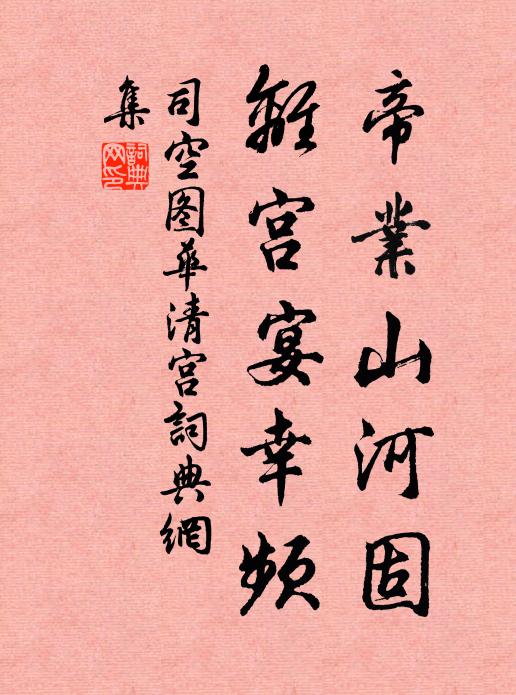 帝業山河固
離宮宴幸頻
司空图華清宫詞典網
集
詞典網印